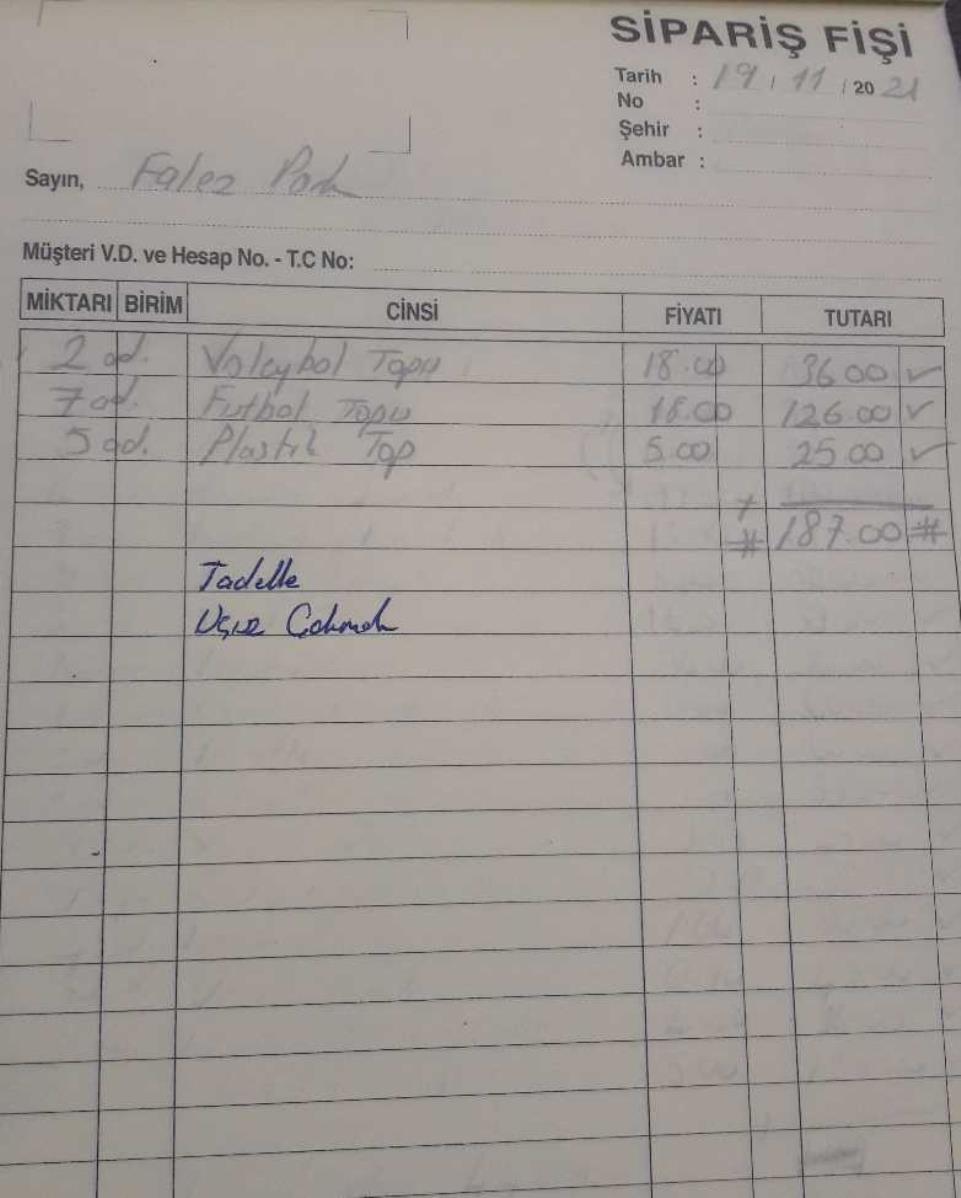 SİPARİŞ FİŞİ
Tarih : 19 / 11 / 20 21
No :
Şehir :
Ambar :
Sayın, Falez Park
Müşteri V.D. ve Hesap No. - T.C No:
MİKTARI BİRİM CİNSİ FİYATI TUTARI
2 ad. Voleybol Topu 18.00 36 00 ✓
7 ad. Futbol Topu 18.00 126.00 ✓
5 ad. Plastik Top 5.00 25 00 ✓
+
# 187.00 #
Tadelle
Uçuz Çakmak